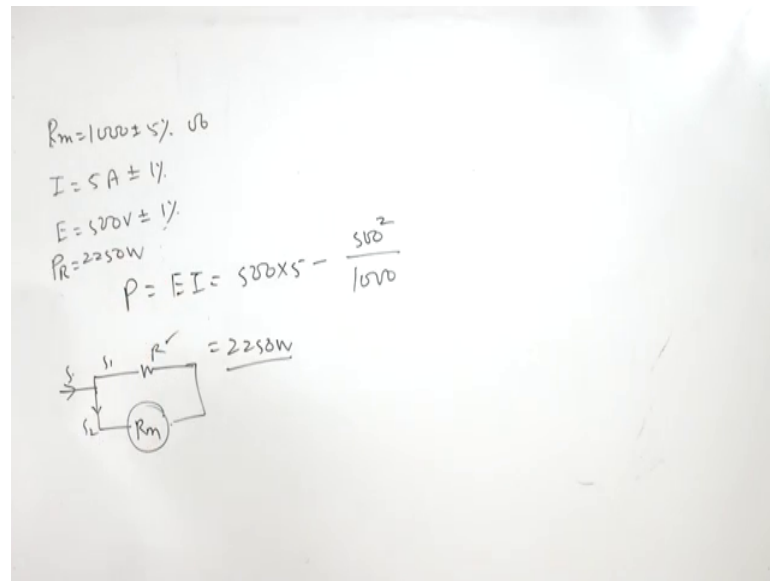 Rm=1000±5%. Ω
I=5A±1%
E=500V±1%.
PR=2250W
P=EI=500x5-500²/1000
=2250W
R
Rm